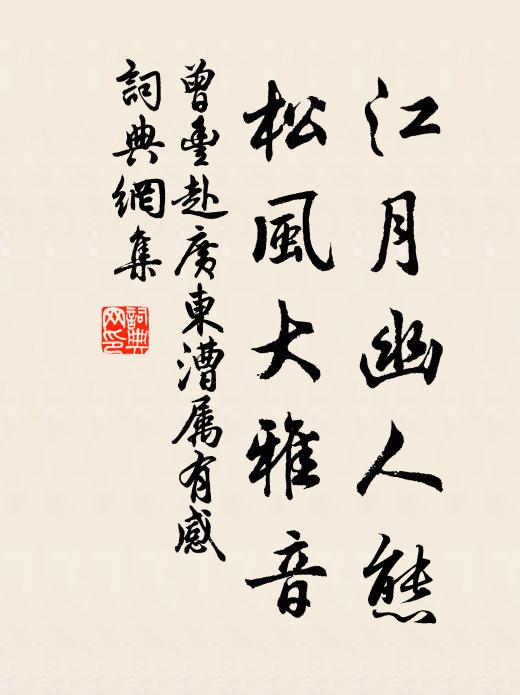 江月幽人態
松風大雅音
曾豐赴廣東漕属有感
詞典網集
詞典网印